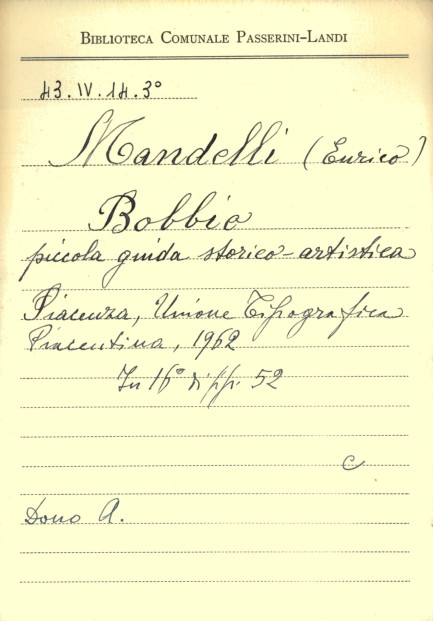 BIBLIOTECA COMUNALE PASSERINI-LANDI
43.IV.14.3°
Mandelli (Enrico)
Bobbio
piccola guida storico-artistica
Piacenza, Unione Tipografica
Piacentina, 1962
In 16° di pp. 52
C
Dono A.